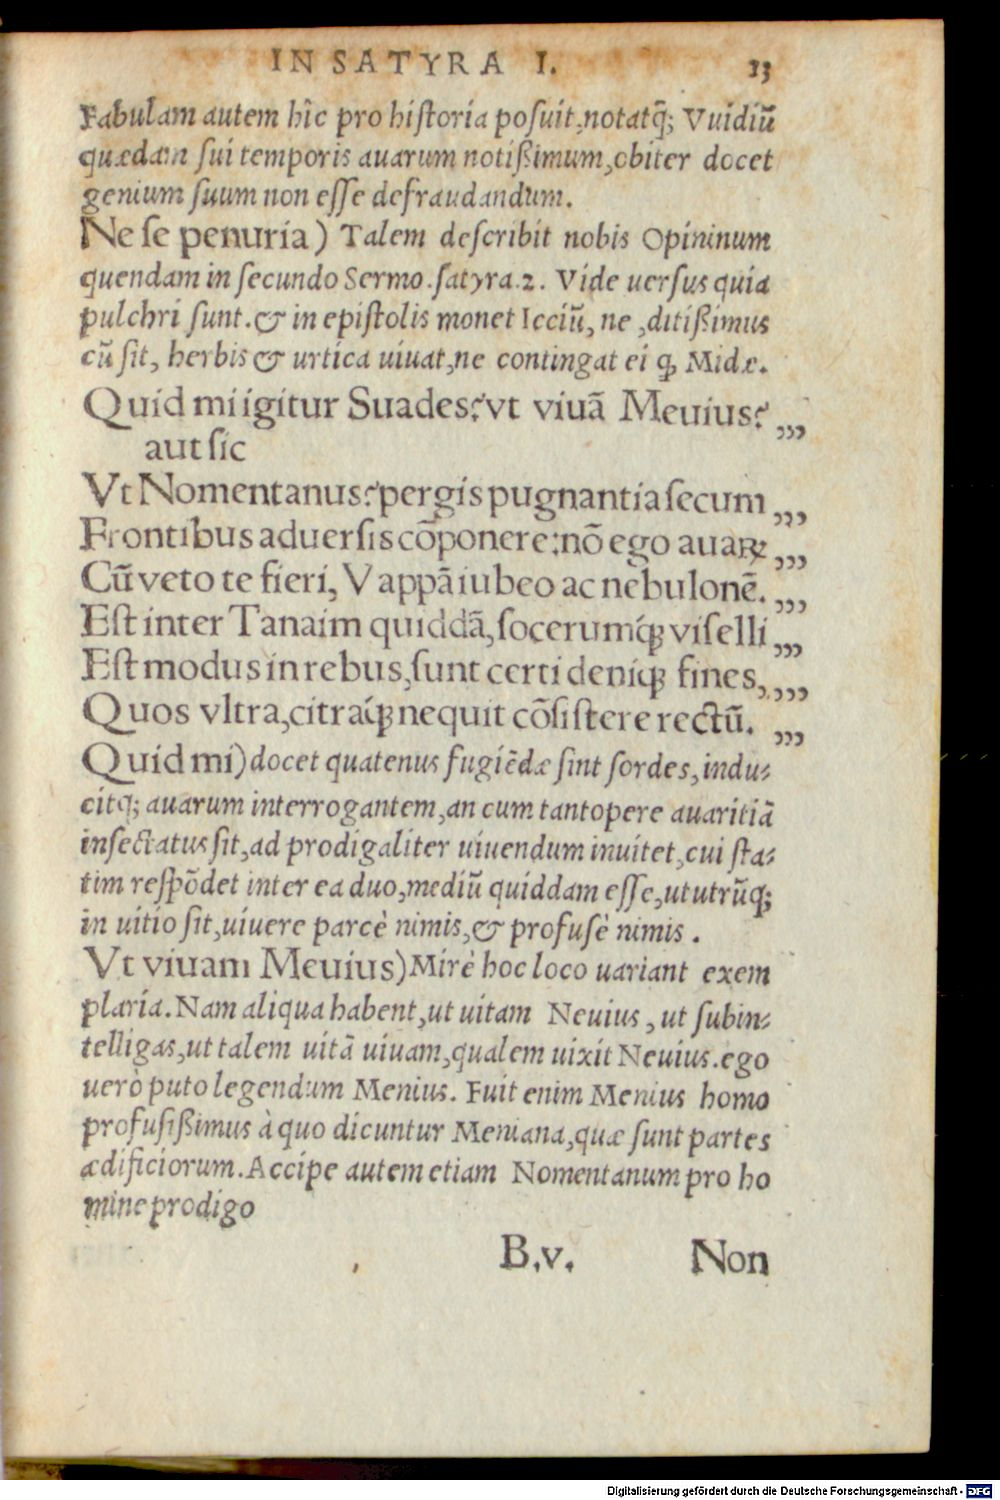 IN SATYRA I. 13
Fabulam autem hîc pro historia posuit, notatq; Vuidiũ
quædam sui temporis auarum notißimum, obiter docet
genium suum non esse defraudandum.
Ne se penuria) Talem describit nobis Opininum
quendam in secundo Sermo. satyra. 2. Vide uersus quia
pulchri sunt. & in epistolis monet Icciũ, ne, ditißimus
cũ sit, herbis & urtica uiuat, ne contingat ei ꝙ Midæ.
Quid mi igitur Suades? vt viuã Meuius? „,
aut sic
Vt Nomentanus? pergis pugnantia secum „,
Frontibus aduersis cõponere: nõ ego auaꝝ „,
Cũ veto te fieri, Vappã iubeo ac nebulonẽ. „,
Est inter Tanaim quiddã, socerumq́ꝫ viselli „,
Est modus in rebus, sunt certi deniq́ꝫ fines, „,
Quos vltra, citraq́ꝫ nequit cõsistere rectũ. „,
Quid mi) docet quatenus fugiẽdæ sint sordes, indu-
citq; auarum interrogantem, an cum tantopere auaritiã
insectatus sit, ad prodigaliter uiuendum inuitet, cui sta-
tim respõdet inter ea duo, mediũ quiddam esse, ut utrũq;
in uitio sit, uiuere parcè nimis, & profusè nimis.
Vt viuam Meuius) Mirè hoc loco uariant exem
plaria. Nam aliqua habent, ut uitam Neuius, ut subin-
telligas, ut talem uitã uiuam, qualem uixit Neuius. ego
uerò puto legendum Menius. Fuit enim Menius homo
profusißimus à quo dicuntur Meniana, quæ sunt partes
ædificiorum. Accipe autem etiam Nomentanum pro ho
mine prodigo
B.v. Non
Digitalisierung gefördert durch die Deutsche Forschungsgemeinschaft - DFG